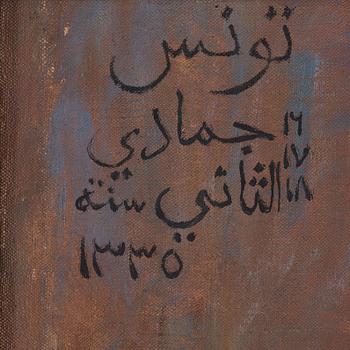 تونس
جمادي ١٦
١٧
الثاني ١٨
سنة
١٣٣٥